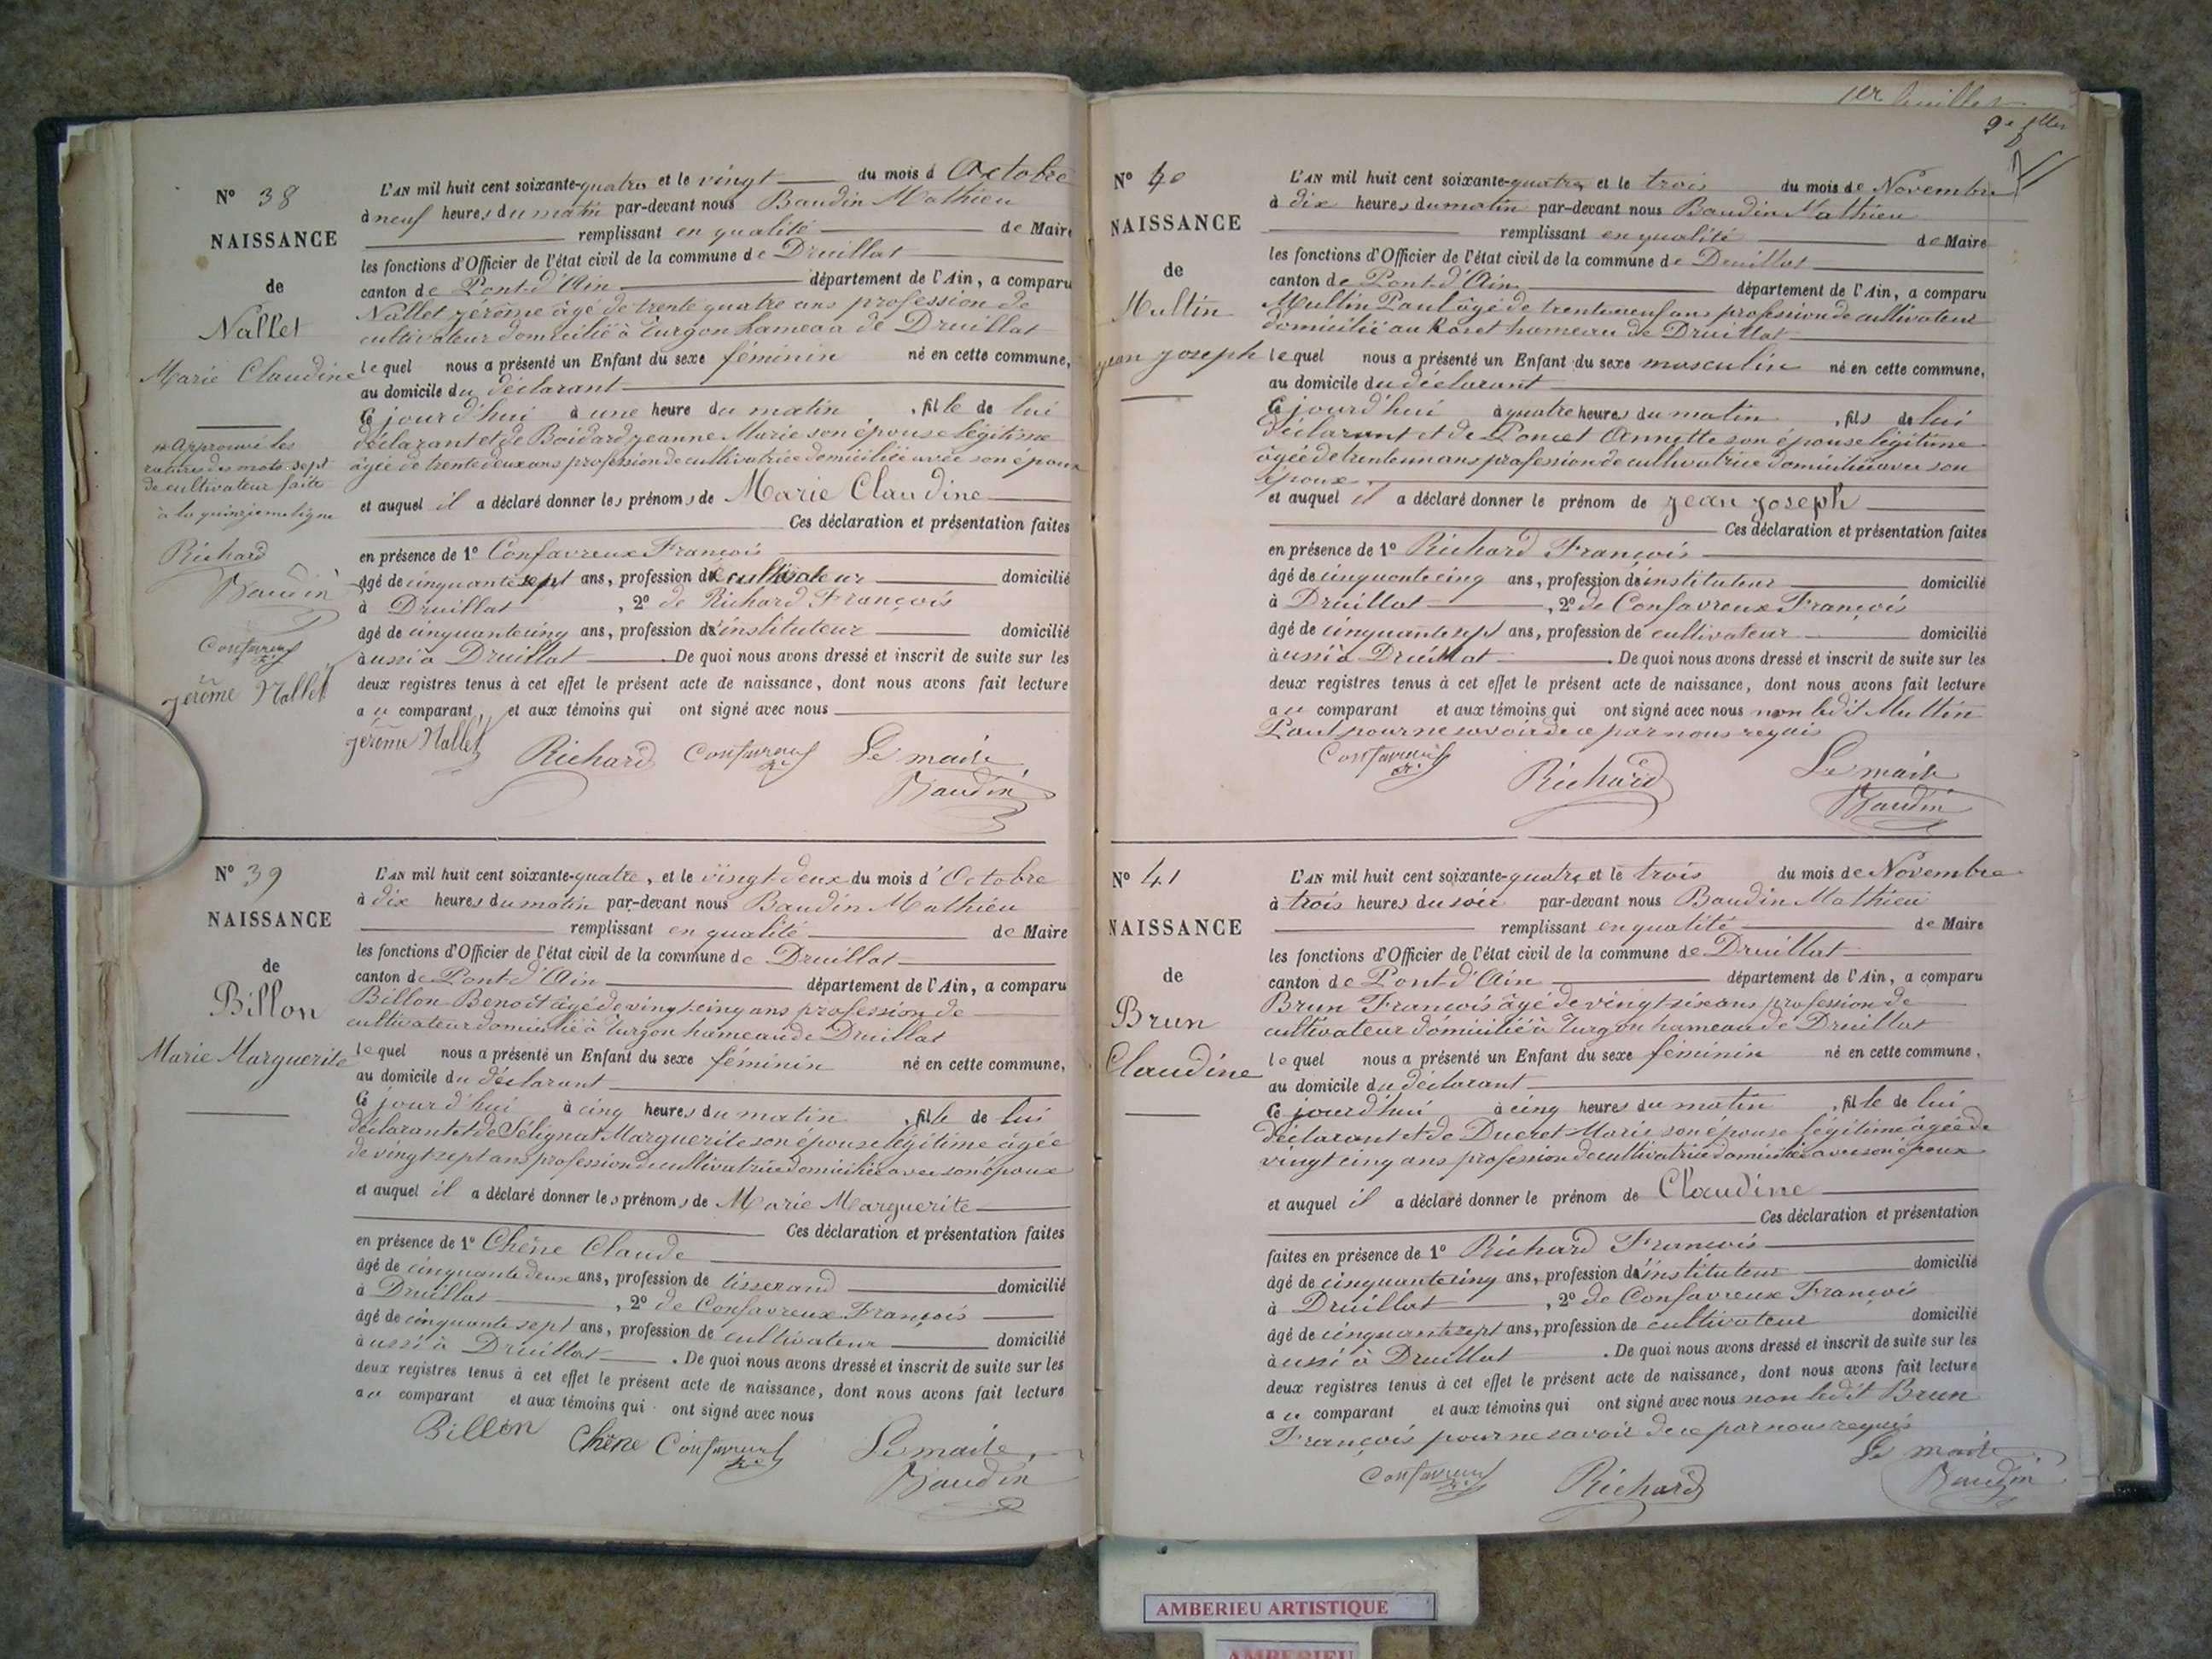 N° 38
NAISSANCE
de
Nallet
Marie Claudine
Approuvé les
ratures des mots sept
de cultivateur faite
à la quinzième ligne
Richard
Baudin
Confavreux
Jérôme Nallet
L'AN mil huit cent soixante-quatre et le vingt du mois d Octobre
à neuf heures du matin par-devant nous Baudin Mathieu
remplissant en qualité de Maire
les fonctions d'Officier de l'état civil de la commune de Druillat
canton de Pont-d'Ain département de l'Ain, a comparu
Nallet Jérôme âgé de trente quatre ans profession de
cultivateur domicilié à Turgon hameau de Druillat
lequel nous a présenté un Enfant du sexe féminin né en cette commune,
au domicile du déclarant
Ce jourd'hui à une heure du matin, fille de lui
déclarant et de Boidard Jeanne Marie son épouse légitime
âgée de trente deux ans profession de cultivatrice domiciliée avec son époux
et auquel il a déclaré donner les prénoms de Marie Claudine
Ces déclaration et présentation faites
en présence de 1° Confavreux François
âgé de cinquante sept ans, profession de cultivateur domicilié
à Druillat, 2° de Richard François
âgé de cinquante cinq ans, profession d'instituteur domicilié
aussi à Druillat. De quoi nous avons dressé et inscrit de suite sur les
deux registres tenus à cet effet le présent acte de naissance, dont nous avons fait lecture
au comparant, et aux témoins qui ont signé avec nous
Jérôme Nallet Richard Confavreux Le maire
Baudin
N° 39
NAISSANCE
de
Billon
Marie Marguerite
L'AN mil huit cent soixante-quatre, et le vingt deux du mois d'Octobre
à dix heures du matin par-devant nous Baudin Mathieu
remplissant en qualité de Maire
les fonctions d'Officier de l'état civil de la commune de Druillat
canton de Pont-d'Ain département de l'Ain, a comparu
Billon Benoit âgé de vingt cinq ans profession de
cultivateur domicilié à Turgon hameau de Druillat
lequel nous a présenté un Enfant du sexe féminin né en cette commune,
au domicile du déclarant
Ce jourd'hui à cinq heures du matin, fille de lui
déclarant et de Sélignat Marguerite son épouse légitime âgée
de vingt sept ans profession de cultivatrice domiciliée avec son époux
et auquel il a déclaré donner les prénoms de Marie Marguerite
Ces déclaration et présentation faites
en présence de 1° Chêne Claude
âgé de cinquante deux ans, profession de tisserand domicilié
à Druillat, 2° de Confavreux François
âgé de cinquante sept ans, profession de cultivateur domicilié
aussi à Druillat. De quoi nous avons dressé et inscrit de suite sur les
deux registres tenus à cet effet le présent acte de naissance, dont nous avons fait lecture
au comparant et aux témoins qui ont signé avec nous
Billon Chêne Confavreux Le maire
Baudin
1er feuillet
N° 40
NAISSANCE
de
Multin
Jean Joseph
L'AN mil huit cent soixante-quatre et le trois du mois de Novembre
à dix heures du matin par-devant nous Baudin Mathieu
remplissant en qualité de Maire
les fonctions d'Officier de l'état civil de la commune de Druillat
canton de Pont-d'Ain département de l'Ain, a comparu
Multin Paul âgé de trente neuf ans profession de cultivateur
domicilié au Roset hameau de Druillat
lequel nous a présenté un Enfant du sexe masculin né en cette commune,
au domicile du déclarant
Ce jourd'hui à quatre heures du matin, fils de lui
déclarant et de Poncet Annette son épouse légitime
âgée de trente un ans profession de cultivatrice domiciliée avec son
époux
et auquel il a déclaré donner le prénom de Jean Joseph
Ces déclaration et présentation faites
en présence de 1° Richard François
âgé de cinquante cinq ans, profession d'instituteur domicilié
à Druillat, 2° de Confavreux François
âgé de cinquante sept ans, profession de cultivateur domicilié
aussi à Druillat. De quoi nous avons dressé et inscrit de suite sur les
deux registres tenus à cet effet le présent acte de naissance, dont nous avons fait lecture
au comparant et aux témoins qui ont signé avec nous non ledit Multin
Paul pour ne savoir de ce par nous requis
Confavreux Richard Le maire
Baudin
N° 41
NAISSANCE
de
Brun
Claudine
L'AN mil huit cent soixante-quatre et le trois du mois de Novembre
à trois heures du soir par-devant nous Baudin Mathieu
remplissant en qualité de Maire
les fonctions d'Officier de l'état civil de la commune de Druillat
canton de Pont d'Ain département de l'Ain, a comparu
Brun François âgé de vingt six ans profession de
cultivateur domicilié à Turgon hameau de Druillat
lequel nous a présenté un Enfant du sexe féminin né en cette commune,
au domicile du déclarant
Ce jourd'hui à cinq heures du matin, fille de lui
déclarant et de Ducret Marie son épouse légitime âgée de
vingt cinq ans profession de cultivatrice domiciliée avec son époux
et auquel il a déclaré donner le prénom de Claudine
Ces déclaration et présentation
faites en présence de 1° Richard François
âgé de cinquante cinq ans, profession d'instituteur domicilié
à Druillat, 2° de Confavreux François
âgé de cinquante sept ans, profession de cultivateur domicilié
aussi à Druillat. De quoi nous avons dressé et inscrit de suite sur les
deux registres tenus à cet effet le présent acte de naissance, dont nous avons fait lecture
au comparant et aux témoins qui ont signé avec nous non ledit Brun
François pour ne savoir de ce par nous requis
Confavreux Richard Le maire
Baudin
AMBERIEU ARTISTIQUE
AMBERIEU